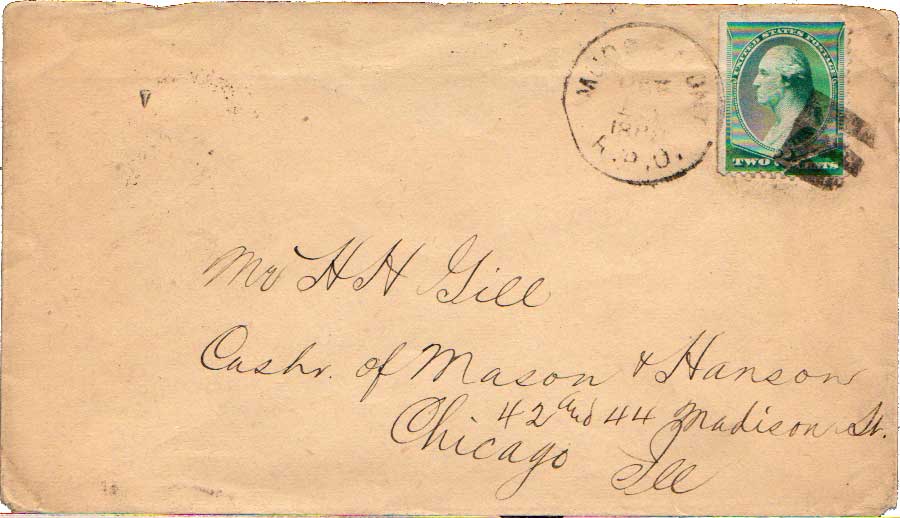 UNITED STATES POSTAGE
TWO CENTS
R.P.O.
Mr H H Gill
Cashr. of Mason & Hanson
42 and 44 Madison St.
Chicago Ill